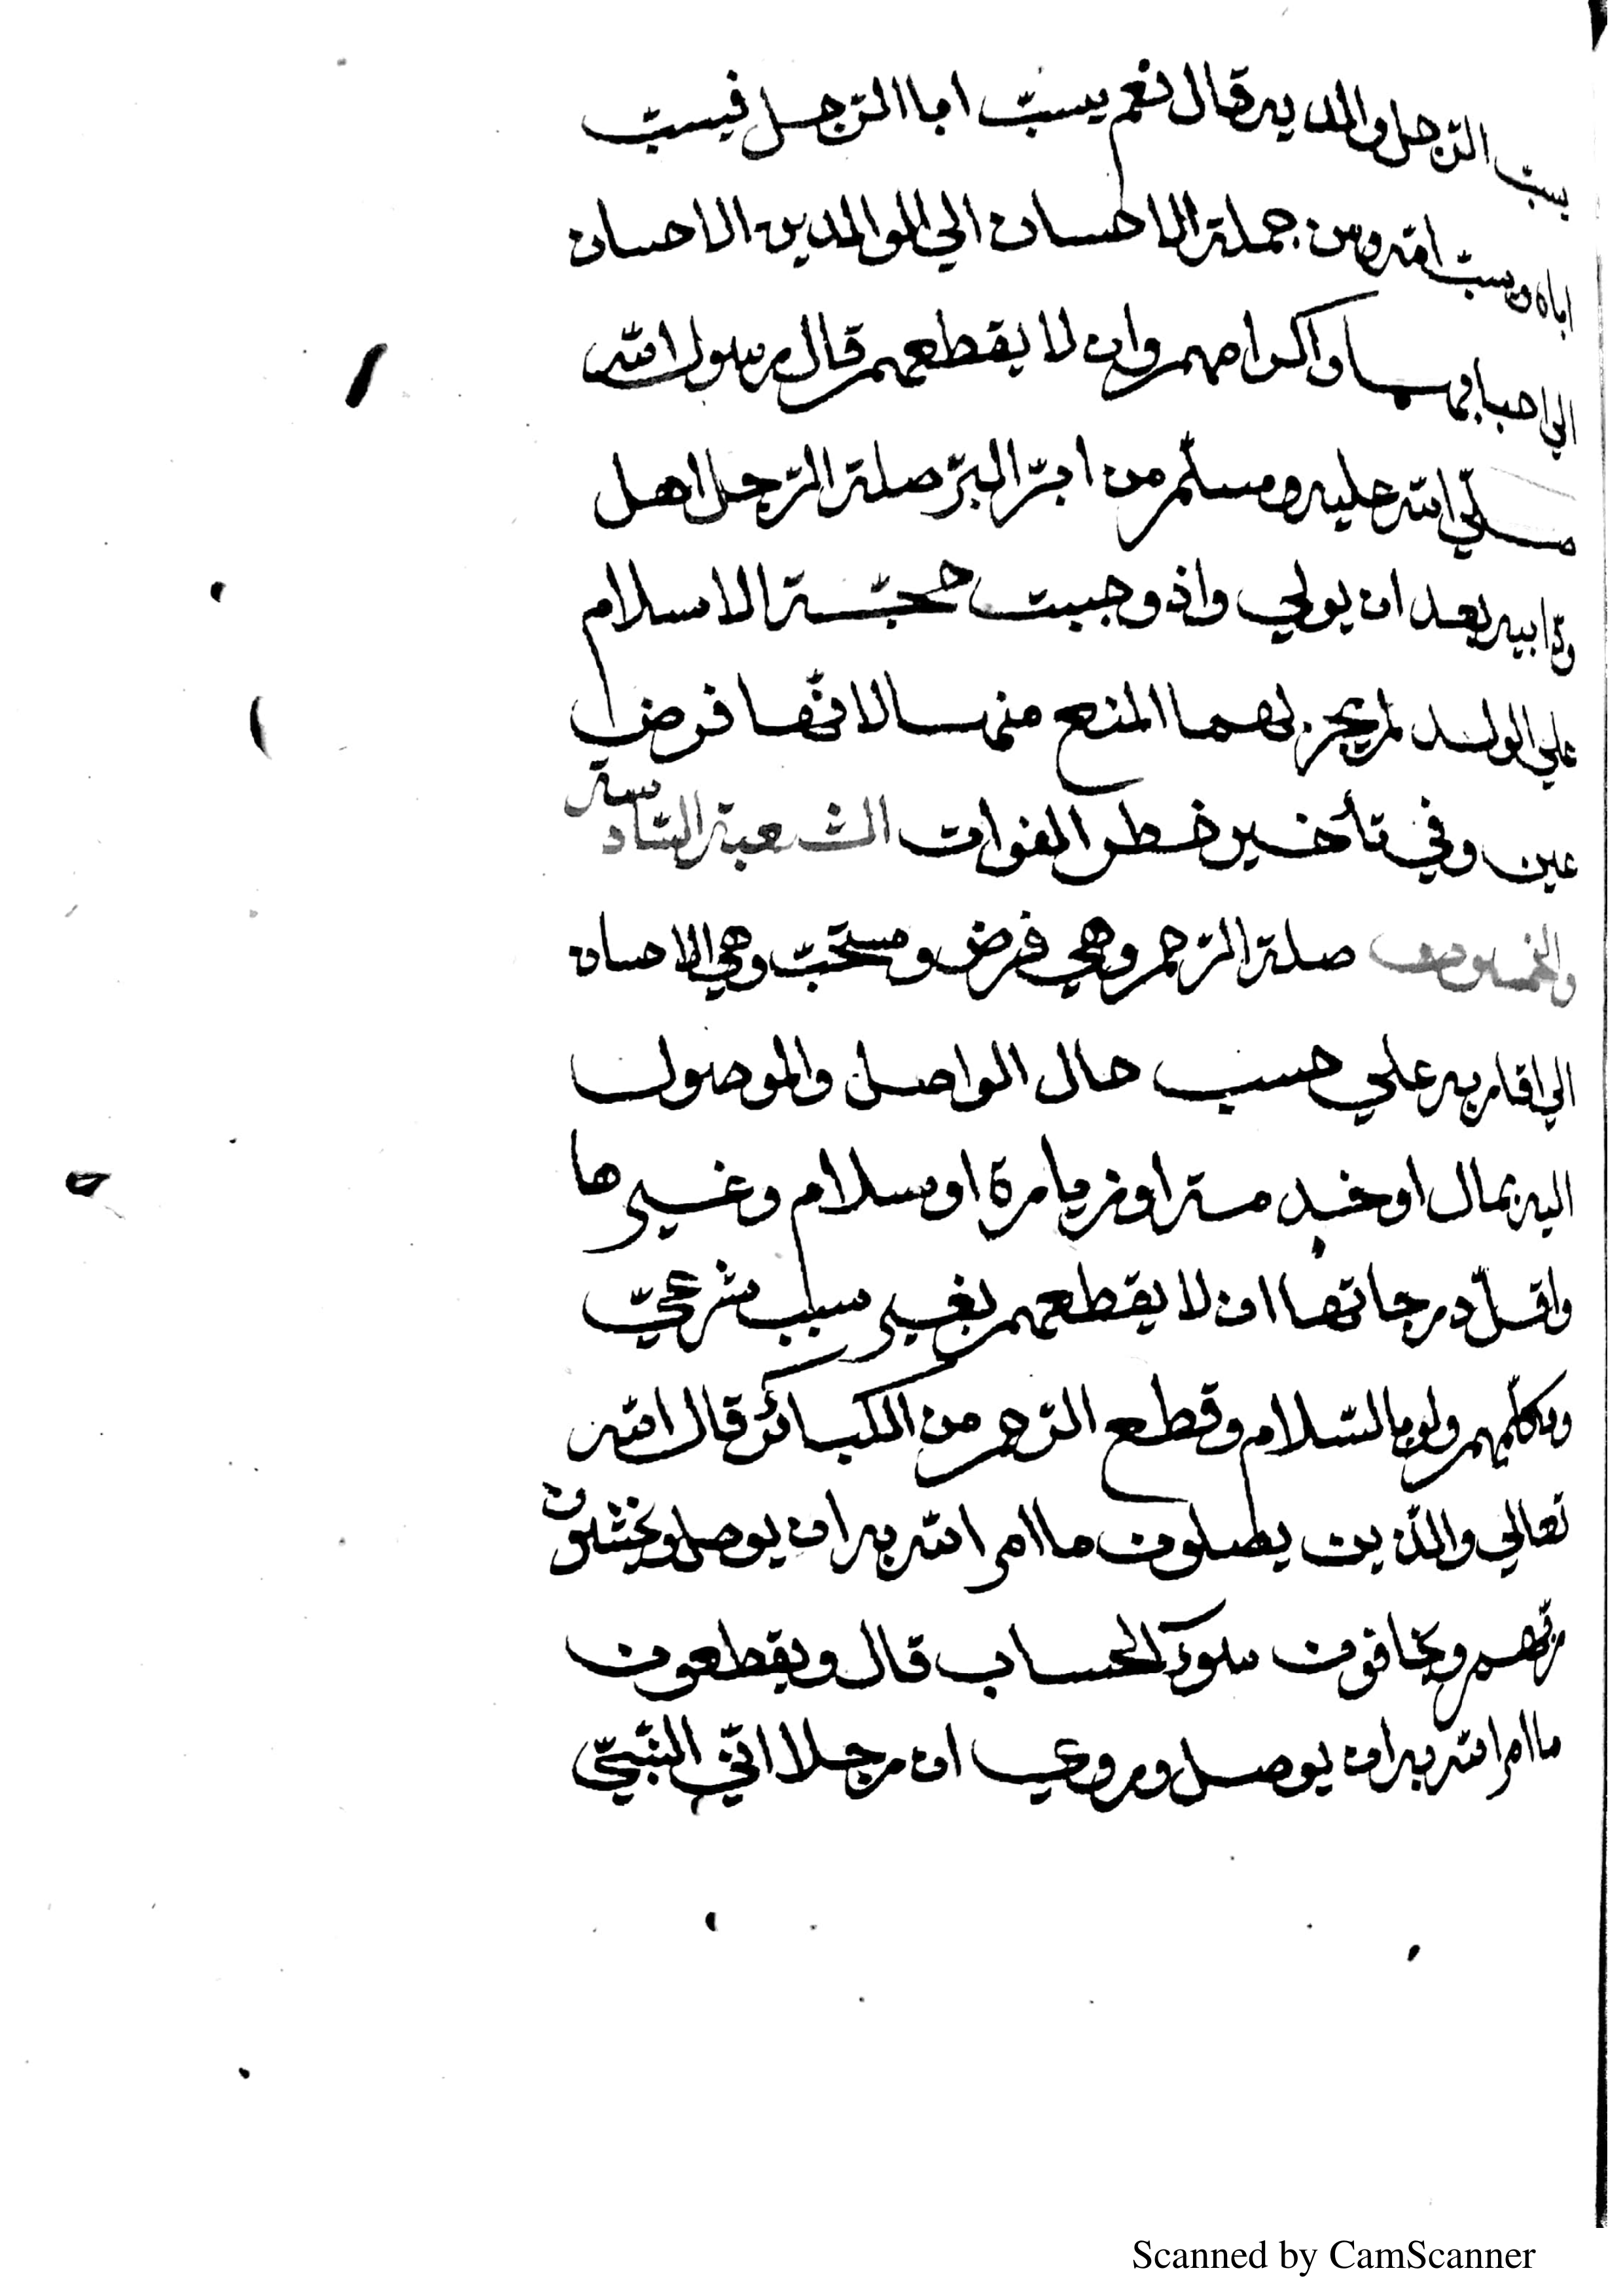 يسبّ الرّجل والديه قال نعم يسبّ ابا الرّجل فيسبّ
اباه ويسبّ امّه ومن جملة الاحسان الي الوالدين الاحسان
الي احبابهما واكرامهم وان لا يقطعهم قال رسول الله
صلّي الله عليه وسلّم من ابرّ البرّ صلة الرّجل اهل
ودّ ابيه بعد ان يولي واذ وجبت حجّة الاسلام
علي الولد لم يجز لهما المنع منها لانّها فرض
عين وفي تأخير خطر الفوات الشعبة السّادسة
والخمسون صلة الرّحم وهي فرض ومستحبّ وهي الاحسان
الي اقاربه علي حسب حال الواصل والموصول
اليه بمال او خدمة او زيارة او سلام وغيرها
واقلّ درجاتها ان لا يقطعهم بغير سبب شرعيّ
ويكلّمهم ولو بالسّلام وقطع الرّحم من الكبائر قال الله
تعالي والّذين يصلون ما امر الله به ان يوصل ويخشون
ربّهم ويخافون سوء الحساب قال ويقطعون
ما امر الله به ان يوصل وروي ان رجلا اتي النّبيّ
Scanned by CamScanner